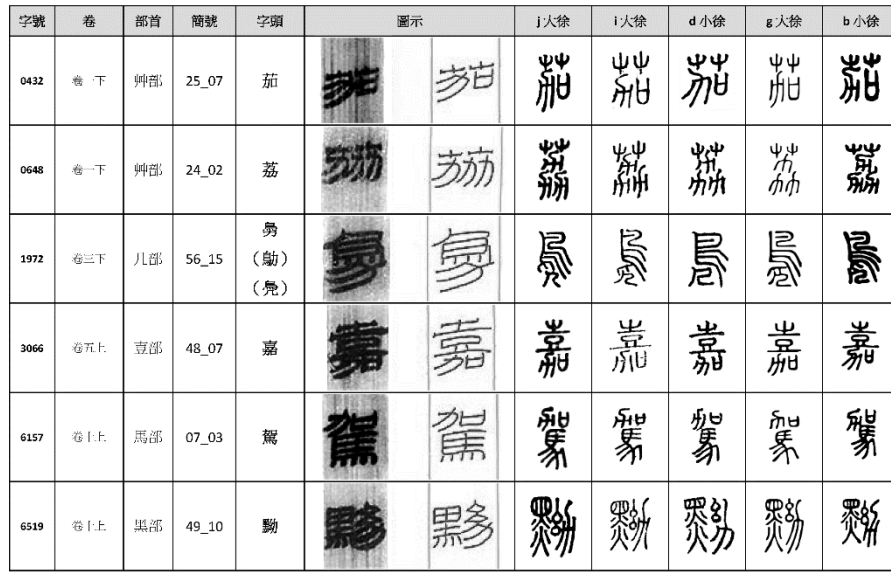 字號 卷 部首 簡號 字頭 圖示 j大徐 i大徐 d小徐 g大徐 b小徐
0432 卷一下 艸部 25_07 茄
0648 卷一下 艸部 24_02 荔
1972 卷三下 56_15
3066 卷五上 壴部 48_07 嘉
6157 卷十上 馬部 07_03 駕
6519 卷十上 黑部 49_10 黝